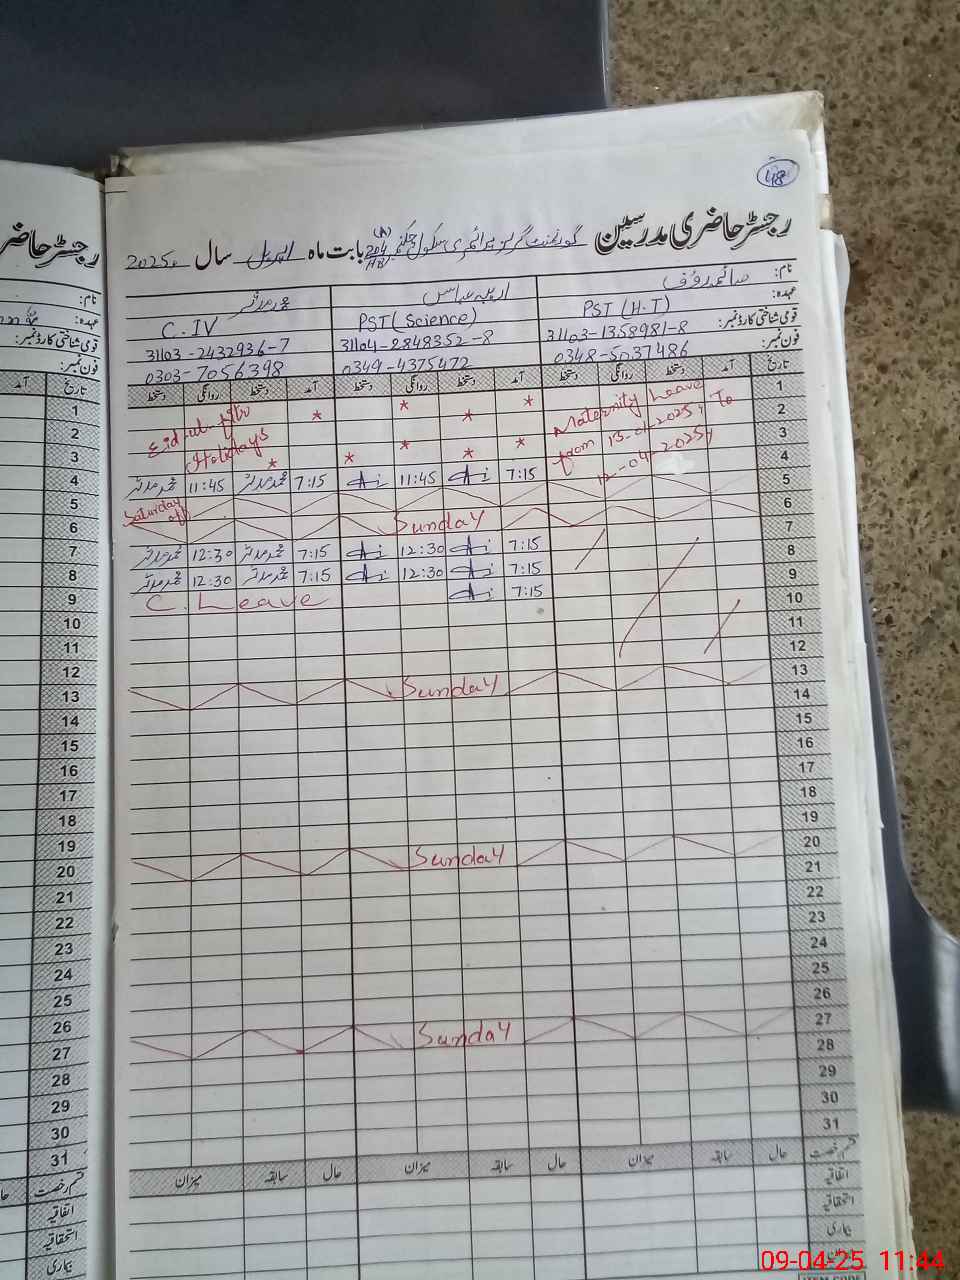 48
رجسٹر حاضری مدرسین گورنمنٹ گرلز پرائمری سکول چکنمبر 204 (A) HB بابت ماہ اپریل سال 2025ء
رجسٹر حاضر
نام: صائمہ رؤف
عہدہ: PST (H.T) PST (Science) C.IV
قومی شناختی کارڈ نمبر: 31103-1358981-8 31104-2848352-8 31103-2432936-7
فون نمبر: 0348-5037486 0349-4375472 0303-7056398
تاریخ آمد دستخط روانگی دستخط آمد دستخط روانگی دستخط آمد دستخط روانگی دستخط
1 Maternity Leave
2 from 13-01-2025, To
3 12-04-2025,
Eid-ul-fitr
Holidays
4 7:15 11:45 7:15 11:45
5 Saturday off
6 Sunday
7 7:15 12:30 7:15 12:30
8 7:15 12:30 7:15 12:30
9 7:15 C. Leave
10
11
12
13 Sunday
14
15
16
17
18
19
20 Sunday
21
22
23
24
25
26
27 Sunday
28
29
30
31
قسم رخصت حال سابقہ میزان حال سابقہ میزان حال سابقہ میزان
اتفاقیہ
استحقاقیہ
بیماری
نام:
عہدہ:
قومی شناختی کارڈ نمبر:
فون نمبر:
تاریخ آمد
1
2
3
4
5
6
7
8
9
10
11
12
13
14
15
16
17
18
19
20
21
22
23
24
25
26
27
28
29
30
31
قسم رخصت
اتفاقیہ
استحقاقیہ
بیماری
09-04-25 11:44